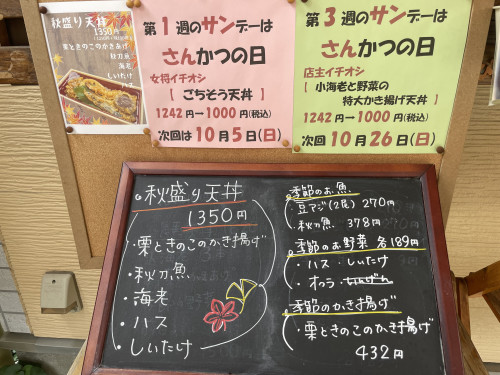 秋盛り天丼
1350円
栗ときのこのかきあげ
秋刀魚
海老
ハス
しいたけ
第1週のサンデーは
さんかつの日
女将イチオシ
【 ごちそう天丼 】
1242円→1000円(税込)
次回は10月5日(日)
第3週のサンデーは
さんかつの日
店主イチオシ
【 小海老と野菜の
特大かき揚げ天丼 】
1242円→1000円(税込)
次回は10月26日(日)
秋盛り天丼
1350円
・栗ときのこのかき揚げ
・秋刀魚
・海老
・ハス
・しいたけ
季節のお魚
・豆アジ(2尾) 270円
・秋刀魚 378円
季節のお野菜 各189円
・ハス ・しいたけ
・オクラ
季節のかき揚げ
・栗ときのこのかき揚げ
432円